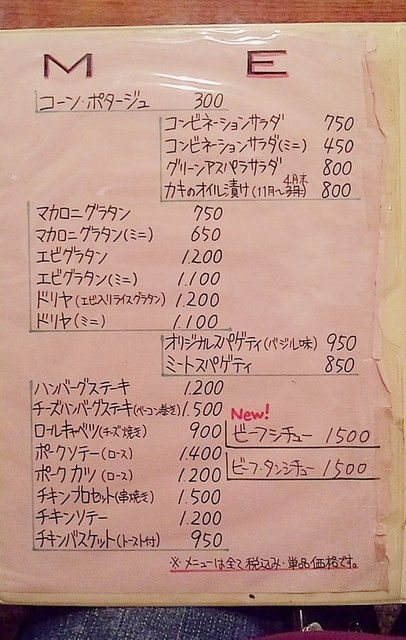 M E
コーン・ポタージュ 300
コンビネーションサラダ 750
コンビネーションサラダ(ミニ) 450
グリーンアスパラサラダ 800
カキのオイル漬け(11月〜4月末) 800
マカロニグラタン 750
マカロニグラタン(ミニ) 650
エビグラタン 1.200
エビグラタン(ミニ) 1.100
ドリヤ(エビ入りライスグラタン) 1.200
ドリヤ(ミニ) 1.100
オリジナルスパゲティ(バジル味) 950
ミートスパゲティ 850
ハンバーグステーキ 1.200
チーズハンバーグステーキ(ベーコン巻き) 1.500
ロールキャベツ(チーズ焼き) 900
ポークソテー(ロース) 1.400
ポークカツ(ロース) 1.200
チキンブロセット(串焼き) 1.500
チキンソテー 1.200
チキンバスケット(トースト付) 950
New!
ビーフシチュー 1500
ビーフ・タンシチュー 1500
※メニューは全て税込み・単品価格です。